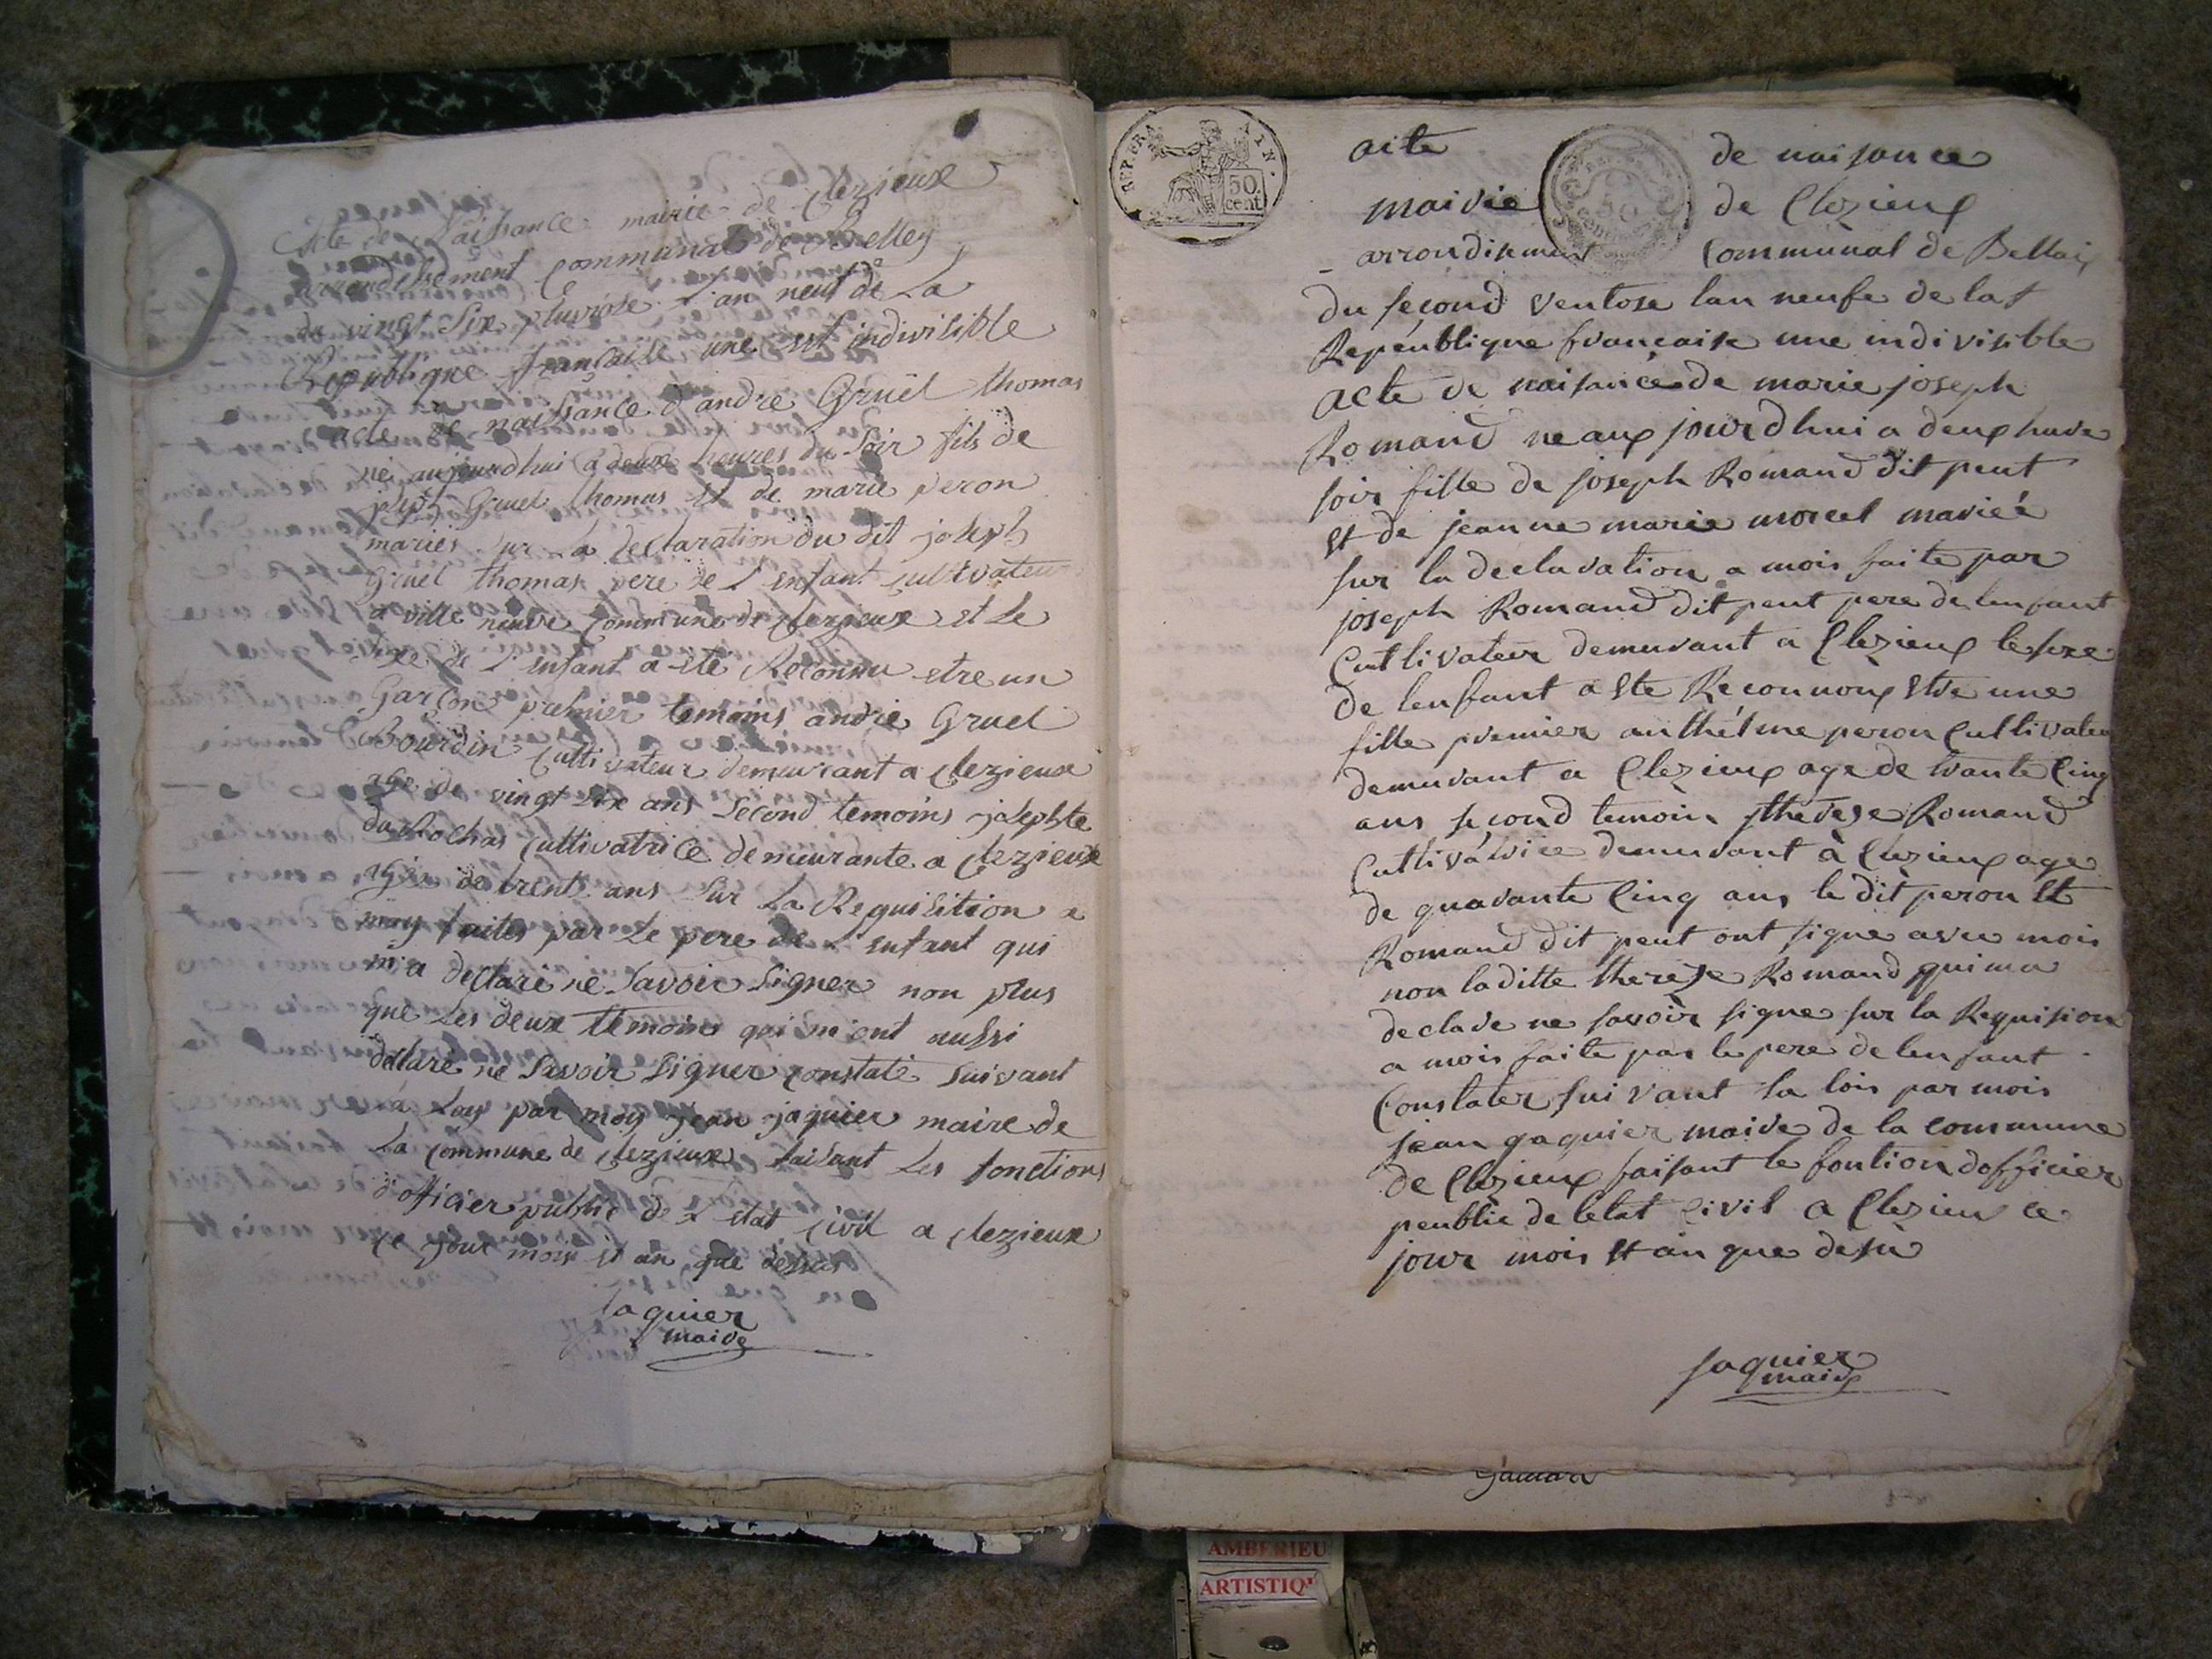 Acte de Naissance mairie de clezieux
arrondissement communal de Belley
du vingt six pluviose L'an neuf de La
Republique francaise une et indivisible
acte de naissance d'andre Gruel thomas
né aujourdhui a deux heures du soir fils de
joseph Gruel thomas et de marie peron
mariés sur La declaration du dit joseph
Gruel thomas pere de L'enfant cultivateur
a ville neuve commune de clezieux et Le
sexe de L'enfant a ete Reconnu etre un
Garçon premier temoins andre Gruel
Bourdin cultivateur demeurant a clezieux
age de vingt six ans second temoins josephte
du Rochas cultivatrice demeurante a clezieux
agée de trent ans sur La Requisition a
moy faites par Le pere de L'enfant qui
m'a declaré ne savoir signer non plus
que Les deux temoins qui m'ont aussi
declaré ne savoir signer constaté suivant
la Loy par moy jean jaquier maire de
La commune de clezieux faisant Les fonctions
d'officier public de L'etat civil a clezieux
ce jour mois et an que dessus
Jaquier
maire
REP. FRA 50. cent.
aite de naisance
mairie de Clezieux
arrondisement Communal de Bellai
du second ventose lan neufe de lat
Repeublique francaise une indivisible
acte de naisance de marie joseph
Romand ne aux jourdhui a deux hure
soir fille de joseph Romand dit peut
et de jeanne marie morcel mariéé
sur la declaration a mois faite par
joseph Romand dit peut pere de lenfant
Cultivateur demurant a Clezieux le sexe
de lenfant a ete Reconnoux etre une
fille premier anthélme peron Cultivateu
demurant a Clezieux age de trante Cinq
ans second temoin therese Romand
Cultivatrice demurant à Clezieux age
de quarante Cinq ans le dit peron et
Romand dit peut ont signe avec mois
non laditte therese Romand qui ma
declare ne savoir signe sur la Requision
a mois faite par le pere de lenfant
Constater suivant la lois par mois
jean gaquier maire de la commune
de Clezieux faisant le fontion dofficier
peublic de letat Civil a Clezieu ce
jour mois et an que desu
Jaquier
maire
AMBERIEU
ARTISTIQ'